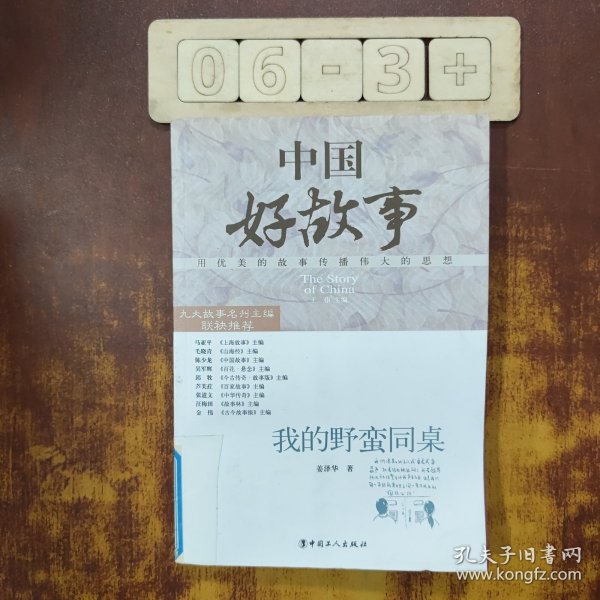 06-3+
中国
好故事
用优美的故事传播伟大的思想
The Story
of China
主编
九大故事名刊主编
联袂推荐
马亚平 《上海故事》主编
毛晓青 《山海经》主编
陈少龙 《中国故事》主编
吴军辉 《百花·悬念》主编
邱牧 《今古传奇·故事版》主编
芦芙荭 《百家故事》主编
张道文 《中华传奇》主编
汪梅田 《故事林》主编
金伟 《古今故事报》主编
我的野蛮同桌
姜泽华 著
中国工人出版社
孔夫子旧书网
www.kongfz.com